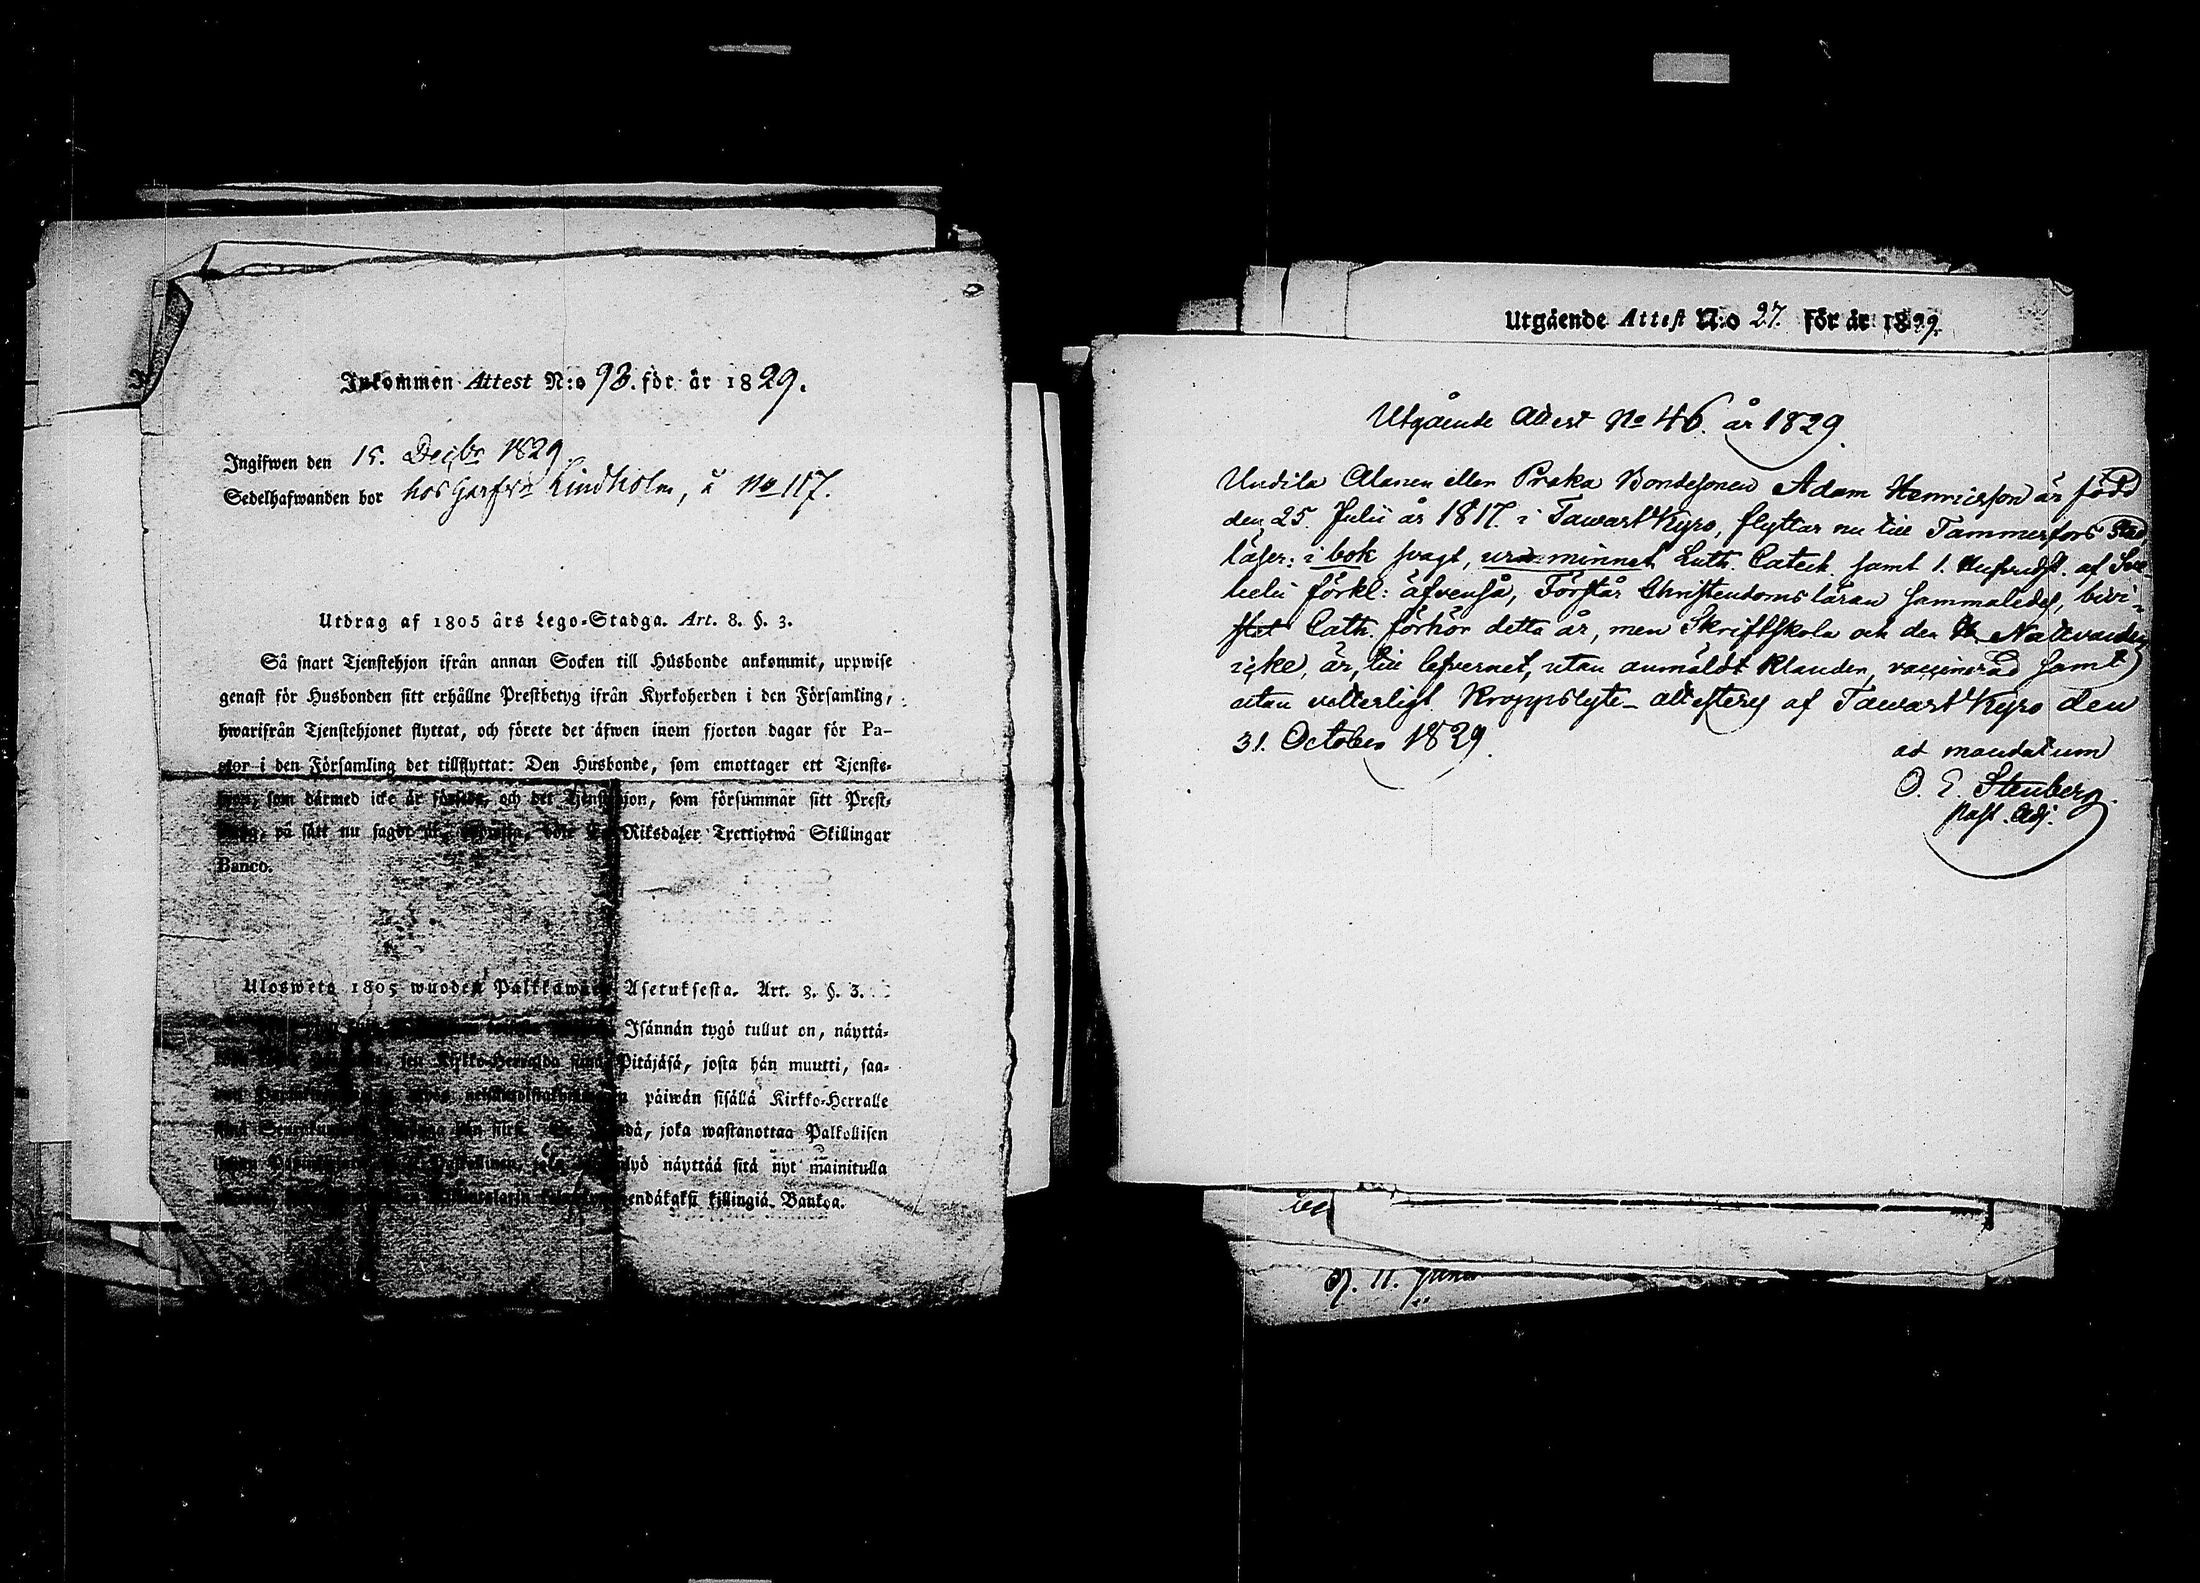 Inkommen Attest N:o 93. för år 1829.
Ingifwen den 15. Decbr 1829
Sedelhafwanden bor hos Garfv. Lindholm, å No 117.
Utdrag af 1805 års Lego-Stadga. Art. 8. §. 3.
Så snart Tjenstehjon ifrån annan Socken till Húsbonde ankommit, uppwise
genast för Husbonden sitt erhållne Prestbetyg ifrån Kyrkoherden i den Församling,
hwarifrån Tjenstehjonet flyttat, och förete det äfwen inom fjorton dagar för Pa-
stor i den Församling det tillflyttat: Den Húsbonde, som emottager ett Tjenste-
som därmed icke är och det Tjenstehjon, som försummar sitt Prest-
på sätt nu sagdt Riksdaler Trettiotwå Skillingar
Banco.
Ulosweto 1805 wuoden Palkkawäen Asetuksesta. Art. 8. §. 3.
Isännän tygö tullut on, näyttä-
Kirkko-Herralda Pitäjäsä, josta hän muutti, saa-
päiwän sisällä Kirkko-Herralle
joka wastanottaa Palkollisen
näyttää sitä nyt mainitulla
killingiä Bankoa.
Utgående Attest N:o 27. För år 1829.
Utgående Attest No 46. år 1829.
Undila Alanen eller Preka Bondesonen Adam Henricsson är född
den 25. Julii år 1817. i TawastKyro, flyttar nu till Tammerfors Stad,
läser: i bok svagt, ur minnet Luth. Catech. samt 1. Hufvudst. af Sve-
belii förkl: äfvenså, Förstår Christendoms läran sammaledes, bevi-
stat Cath. förhör detta år, men Skriftskola och den H. Nattvarden
icke, är till lefvernet, utan anmäldt klander, vaccinerad samt
utan vetterligt Kroppslyte - attesteras af TawastKyro den
31. October 1829.
ad mandatum
O. E. Stenberg.
Past. Adj.
11. Junii